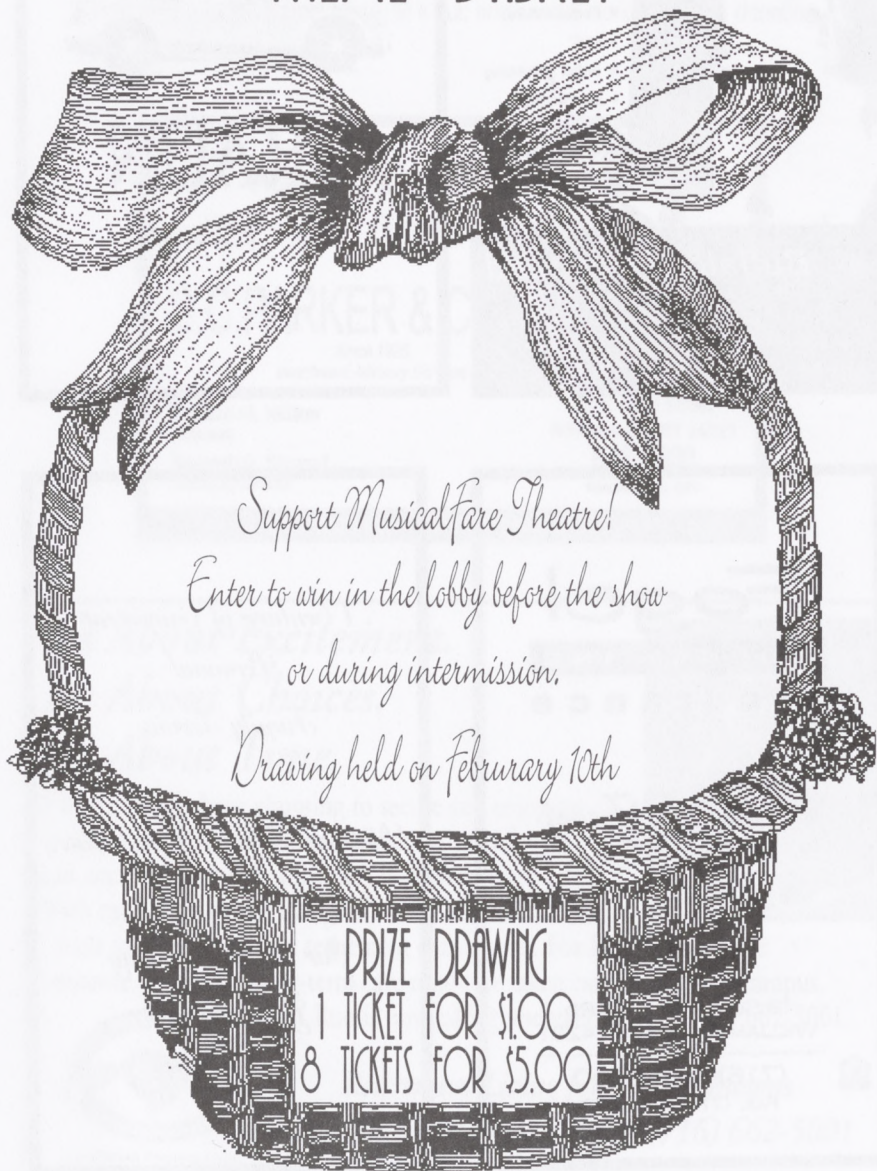 Support MusicalFare Theatre!
Enter to win in the lobby before the show
or during intermission.
Drawing held on Februrary 10th
PRIZE DRAWING
1 TICKET FOR $1.00
8 TICKETS FOR $5.00